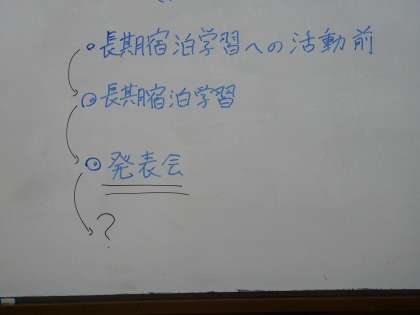 ○長期宿泊学習への活動前
○長期宿泊学習
○発表会
?